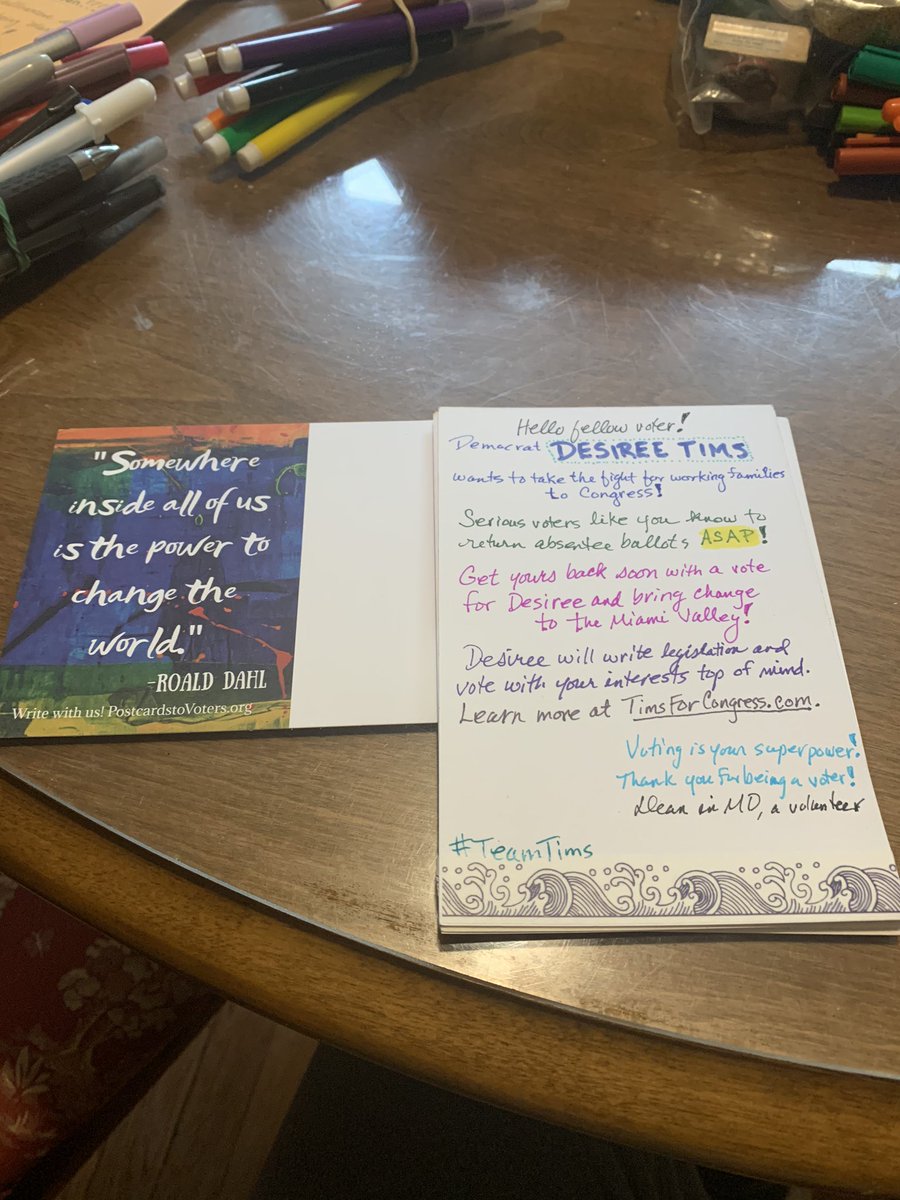 "Somewhere
inside all of us
is the power to
change the
world."
-ROALD DAHL
Write with us! PostcardstoVoters.org
Hello fellow voter!
Democrat DESIREE TIMS
wants to take the fight for working families
to Congress!
Serious voters like you know to
return absentee ballots ASAP!
Get yours back soon with a vote
for Desiree and bring change
to the Miami Valley!
Desiree will write legislation and
vote with your interests top of mind.
Learn more at TimsForCongress.com.
Voting is your superpower!
Thank you for being a voter!
in MD, a volunteer
#TeamTims